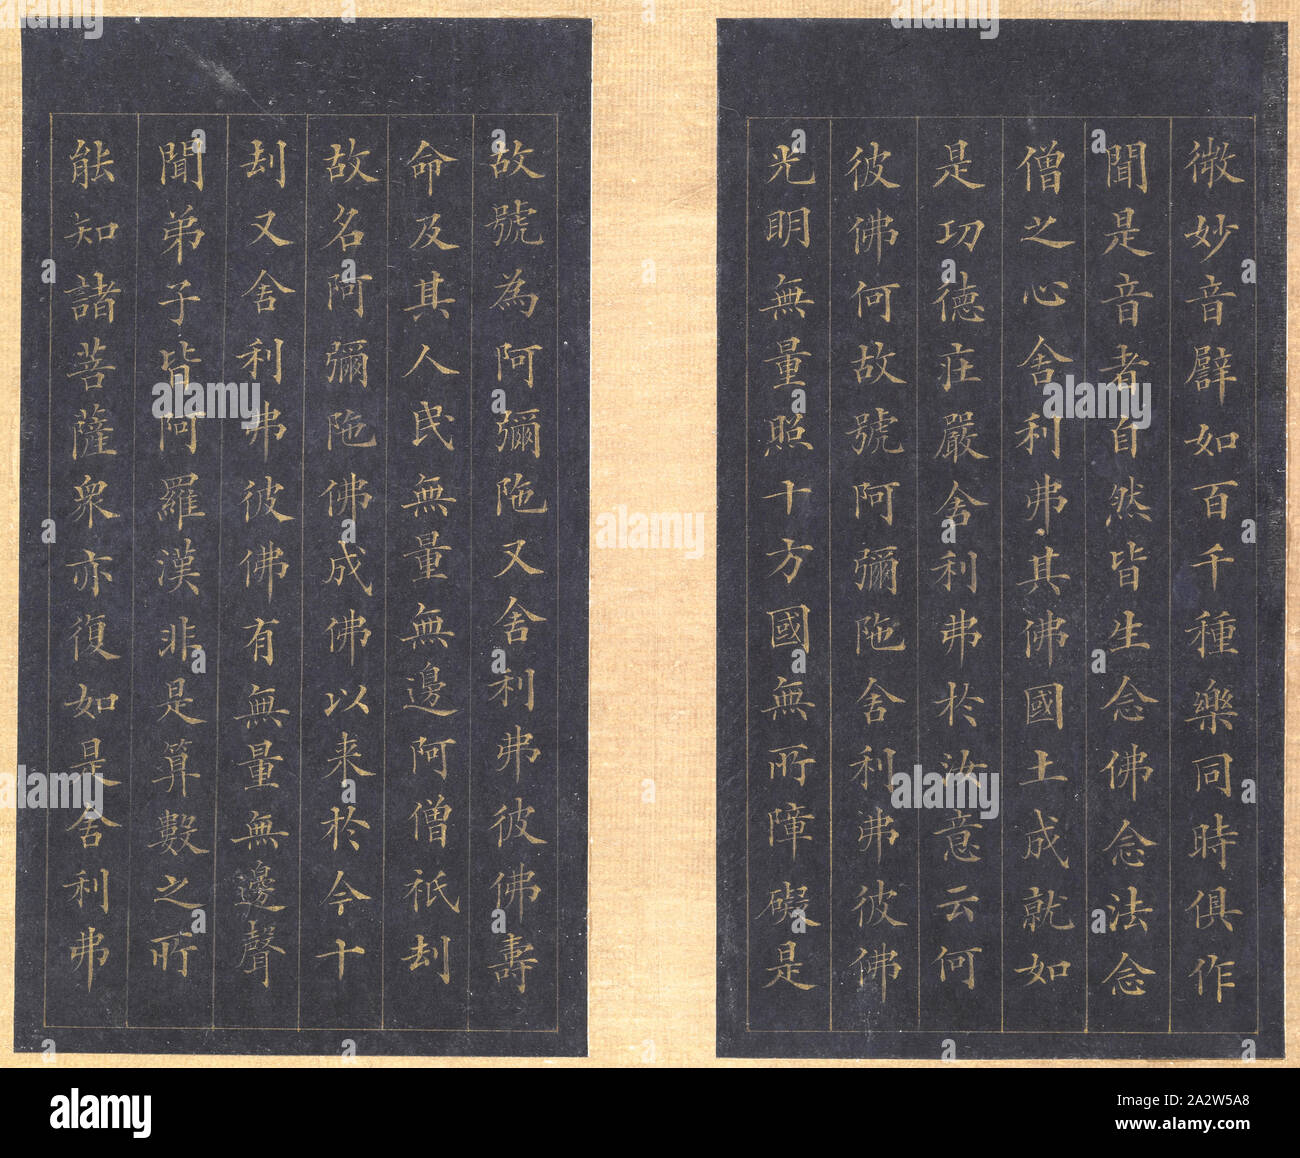 微妙音譬如百千種樂同時俱作
聞是音者自然皆生念佛念法念
僧之心舍利弗其佛國土成就如
是功德莊嚴舍利弗於汝意云何
彼佛何故號阿彌陁舍利弗彼佛
光明無量照十方國無所障礙是
故號為阿彌陁又舍利弗彼佛壽
命及其人民無量無邊阿僧祇刦
故名阿彌陁佛成佛以来於今十
刦又舍利弗彼佛有無量無邊聲
聞弟子皆阿羅漢非是算數之所
能知諸菩薩衆亦復如是舍利弗
alamy
Image ID: 2A2W5A8
www.alamy.com